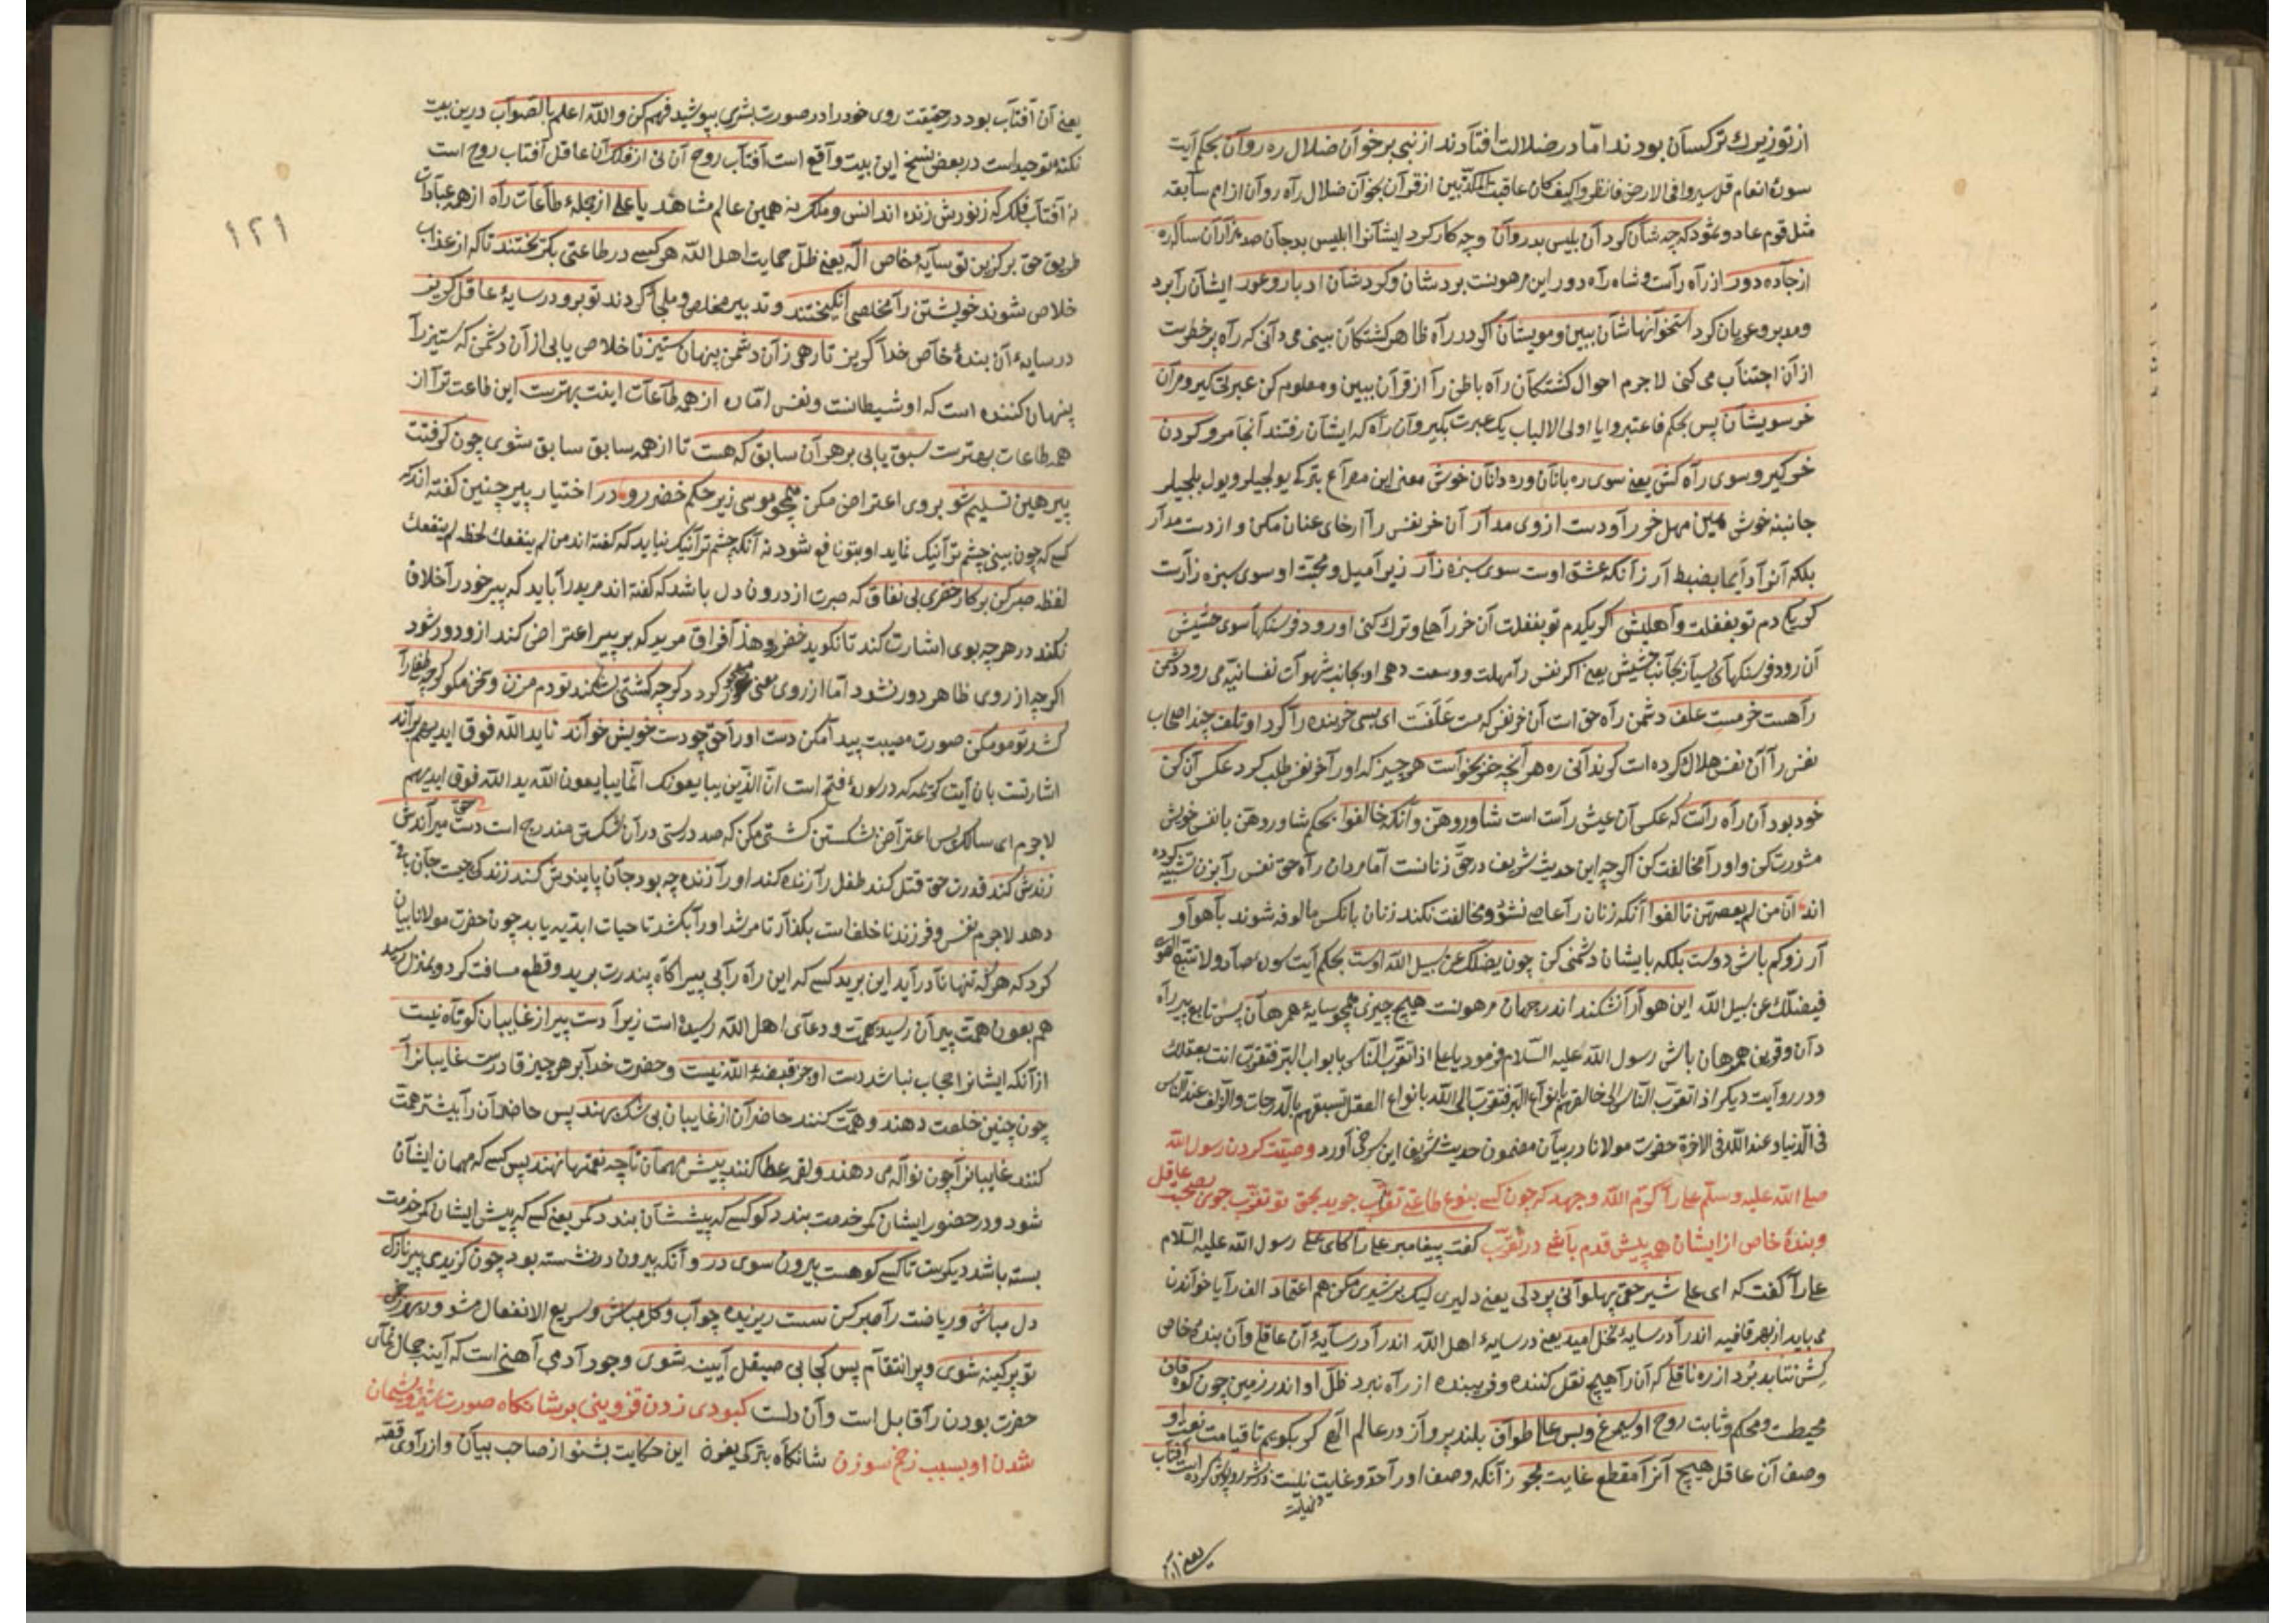 از تو زیرك تر کسان بودند امّا در ضلالت افتادند از نبی بر خوان ضلال ره روان بحکم آیت
سورۀ انعام قل سیروا فی الارض فانظروا کیف کان عاقبت المکذّبین از قرآن بخوان ضلال راه روان از امم سابقه
مثل قوم عاد و ثمود که چه شان کرد آن بلیس بدروان و چه کار کرد ایشانرا ابلیس بدجان صد هزاران ساله ره
از جاده دور از راه راست و شاه راه دور این رهونیت بردشان و کردشان ادبار و عور ایشان را برد
و مدبر و عریان کرد استخوانهاشان ببین و مویشان اگر در راه ظاهر کشتکان بینی می دانی که راه پر خطرست
از آن اجتناب می کنی لاجرم احوال کشتکان راه باطن را از قرآن ببین و معلوم کن عبرتی کیر و مران
خر سویشان پس بحکم فاعتبروا یا اولی الالباب یک عبرت بگیر و آن راه که ایشان رفتند آنجا مرو کردن
خر کیر و سوی راه کش یعنی سوی ره بانان و ره دانان خوش معنی این مصراع بترکی یولجیلر و یول بلجیلر
جانبنه خوش همین مهل خر را و دست از وی مدار آن خر نفس را ارخای عنان مکن و از دست مدار
بلکه آنرا دایما بضبط آر زآنکه عشق اوست سوی سبزه زار زیرا میل و محبّت او سوی سبزه زارست
کر یکی دم تو بغفلت واهلیش اگر یکدم تو بغفلت آن خر را هلی و ترك کنی او رود فرسنکها سوی حشیش
آن رود فرسنکهای بسیار بجانب حشیش یعنی اکر نفس را مهلت و وسعت دهی او بجانب شهوات نفسانیّه می رود دشمن
راهست خر مست علف دشمن راه حق است آن خر نفس که مست علفست ای بسی خربنده را کرد او تلف چند اصحاب
نفس را آن نفس هلاك کرده است کر ندانی ره هر آنچه خر بخواست هر چیز که او را خر نفس طلب کرد عکس آن کن
خود بود آن راه راست که عکس آن عیش راست است شاوروهنّ وآنکه خالفوا بحکم شاوروهنّ با نفس خویش
مشورت کن و اورا مخالفت کن اگر چه این حدیث شریف در حقّ زنانست امّا مردان راه حق نفس را بزن تشبیه کرده
اند آن من لم یعصهنّ تالفوا آنکه زنان را عاصی نشود و مخالفت نکند زنان بانکس مالوفه شوند با هوا و
آرزو کم باش دوست بلکه بایشان دشمنی کن چون یضلّك عن سبیل الله اوست بحکم آیت سورۀ صاد ولا تتّبع الهوی
فیضلّك عن سبیل الله این هوا را نشکند اندر جهان رهونیت هیچ چیزی همچو سایۀ همرهان پس تابع پیر راه
دان و قرین همرهان باش رسول الله علیه السّلام فرمود یا علی اذا تقرّب النّاس بابواب البرّ فتقرّب انت بعقلك
و در روآیت دیکر اذا تقرّب النّاس الی خالقهم بانواع البرّ فتقرّب الی الله بانواع العقل تسبقهم بالدّرجات والزّلف عند النّاس
فی الدّنیا و عند الله فی الاخرة حضرت مولانا در بیان مضمون حدیث شریف این سرخی آورد وصیّت کردن رسول الله
صلّی الله علیه وسلّم علی را کرّم الله وجهه که چون کسی بنوع طاعتی تقرّب جوید بحق تو تقرّب جوی بصحبت عاقل
و بندۀ خاص از ایشان همه پیش قدم باشی در تقرّب کفت پیغامبر علی را کای علی رسول الله علیه السّلام
علی را کفت که ای علی شیر حقّی پهلوانی پر دلی یعنی دلیری لیک بر شیری مکن هم اعتماد الف را یا خواندن
می باید از بهر قافیه اندرا در سایۀ نخل امید یعنی در سایۀ اهل الله اندرا در سایۀ آن عاقلی وآن بندۀ خاص
کش نتاند برد از ره ناقلی که آن را هیچ نقل کننده و فریبنده از راه نبرد ظلّ او اندر زمین چون کوه قاف
محیطست و محکم و ثابت روح او سیمرغ و بس عالی طواف بلند پرواز در عالم الهی کر بکویم تا قیامت نعت او
وصف آن عاقل هیچ آنرا مقطع غایت مجو زآنکه وصف اورا حدّ و غایت و نهایت نیست در بشر روپوش کرده است آفتاب
یعنی آن
یعنی آن آفتاب بود در حقیقت روی خود را در صورت بشری بپوشید فهم کن والله اعلم بالصّواب درین بیت
نکتۀ توحیداست در بعض نسخ این بیت واقع است آفتاب روح آن نی از فلك آن عاقل آفتاب روح است
نه آفتاب فلک که ز نورش زنده اند انس و ملک نه همین عالم مشاهد یا علی از جملۀ طاعات راه از همه عبادات
طریق حق برکزین تو سایۀ خاص اله یعنی ظلّ حمایت اهل الله هر کسی در طاعتی بکریختند تا که از عذاب
خلاص شوند خویشتن را مخلصی انکیختند و تدبیر مخلص و ملجأ کردند تو برو در سایۀ عاقل کریز
در سایۀ آن بندۀ خاص خدا کریز تا رهی زان دشمن پنهان ستیز تا خلاص یابی از آن دشمن که ستیز را
پنهان کننده است که او شیطانست و نفس امّاره از همه طاعات اینت بهترست این طاعت ترا از
همه طاعات بهترست سبق یابی بر هر آن سابق که هست تا از همه سابق سابق شوی چون کرفتت
پیر هین تسلیم شو بر وی اعتراض مکن همچو موسی زیر حکم خضر رو در اختیار پیر چنین کفته اند که
کسی که چون بینی چشم ترا نیک نماید او بتو نافع شود نه آنکه چشم ترا نیک نیاید که کفته اند من لم ینفعك لحظه لم ینفعك
لفظه صبر کن بر کار خضری بی نفاق که صبرت از درون دل باشد که کفته اند مرید را باید که پیر خود را خلاف
نکند در هر چه بوی اشارت کند تا نکوید خضر رو هذا فراق مرید که بر پیر اعتراض کند ازو دور شود
اکر چه از روی ظاهر دور نشود امّا از روی معنی دور کردد کرچه کشتی بشکند تو دم مزن و سخن مکو کرچه طفلی را
کشد تو مو مکن صورت مصیبت پیدا مکن دست اورا حق چو دست خویش خواند تا ید الله فوق ایدیهم براند
اشارتست بان آیت کریمه که در سورۀ فتح است انّ الّذین یبایعونك انّما یبایعون الله ید الله فوق ایدیهم
لاجرم ای سالک پس اعتراض شکستن کشتی مکن که صد درستی در آن شکستی مندرج است دست حق میراندش
زندش کند قدرت حق قتل کند طفل را زنده کند اورا زنده چه بود جان پاینده ش کند زندکی چیست جان باقی
دهد لاجرم نفس و فرزند نا خلف است بکذار تا مرشد اورا بکشد تا حیات ابدیّه یابد چون حضرت مولانا بیان
کرد که هر که تنها نادرا ین ره برید کسی که این راه را بی پیر اکاه پندرت برید و قطع مسافت کرد و بمنزل رسید
هم بعون همّت پیران رسید بهمّت و دعآی اهل الله رسیده است زیرا دست پیر از غایبان کوتاه نیست
از آنکه ایشانرا حجاب نباشد دست او جز قبضۀ الله نیست و حضرت خدا بر هر چیز قادرست غایبانرا
چون چنین خلعت دهند و همّت کنند حاضران از غایبان بی شک بهند پس حاضران را بیشتر همّت
کنند غایبانرا چون نواله می دهند و لقمه عطا کنند پیش مهمان تا چه نعمتها نهند پس کسی که مهمان ایشان
شود و در حضور ایشان کمر خدمت بندد کو کسی که پیششان بندد کمر یعنی کسی که پیش ایشان کمر خدمت
بسته باشد دیکرست تا کسی کو هست بیرون سوی در وآنکه بیرون در نشسته بود چون کزیدی پیر نازك
دل مباش و ریاضت را صبر کن سست ریزیده چو آب و کل مباش و سریع الانفعال مشو ور بهر زخمی
تو پر کینه شوی و پر انتقام پس کجا بی صیقل آیینه شوی وجود آدمی آهنی است که آینه جمال نمای
حضرت بودن را قابل است وآن دلست کبودی زدن قزوینی بر شانکاه صورت شیر و پشیمان
شدن او بسبب زخم سوزن شانکاه بترکی یغرن این حکایت بشنو از صاحب بیان و از راوی قصّه
۱۲۱